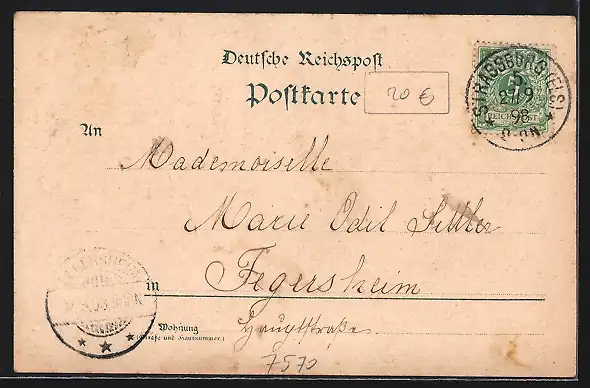 Deutsche Reichspost
Postkarte
20 €
STRASSBURG (ELS)
5
27 9
98
REICHSPOST
An
Mademoiselle
Marie Odil
Fegersheim
in
Wohnung
(Straße und Hausnummer.)
Hauptstraße
7570